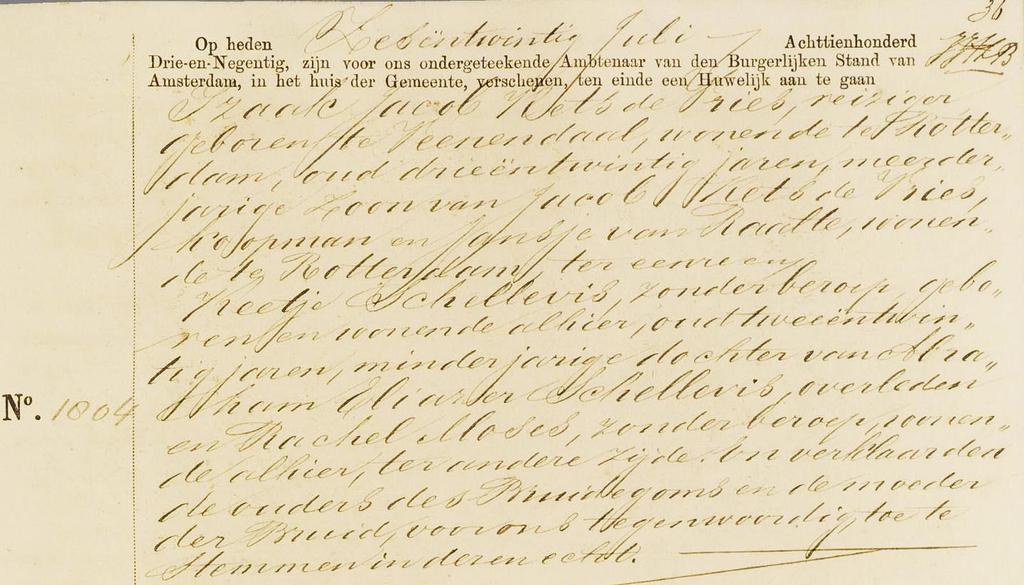 36
Op heden Zesëntwintig Juli Achttienhonderd
Drie-en-Negentig, zijn voor ons ondergeteekende Ambtenaar van den Burgerlijken Stand van
Amsterdam, in het huis der Gemeente, verschenen, ten einde een Huwelijk aan te gaan
Izaak Jacob Kets de Vries, reiziger
geboren te Veenendaal, wonende te Rotter„
dam, oud drieëntwintig jaren, meerder„
jarige Zoon van Jacob Kets de Vries,
Koopman en Jansje van Raalte, wonen„
de te Rotterdam, ter eenre en
Keetje Schellevis, zonder beroep, gebo„
ren en wonende alhier, oud tweeëntwin„
tig jaren, minderjarige dochter van Abra„
No. 1804 ham Eliazer Schellevis, overleden
en Rachel Moses, zonder beroep, wonen„
de alhier, ter andere zijde. En verklaarden
de ouders des Bruidegoms en de moeder
der Bruid, voor ons tegenwoordig toe te
Stemmen in deren echt.